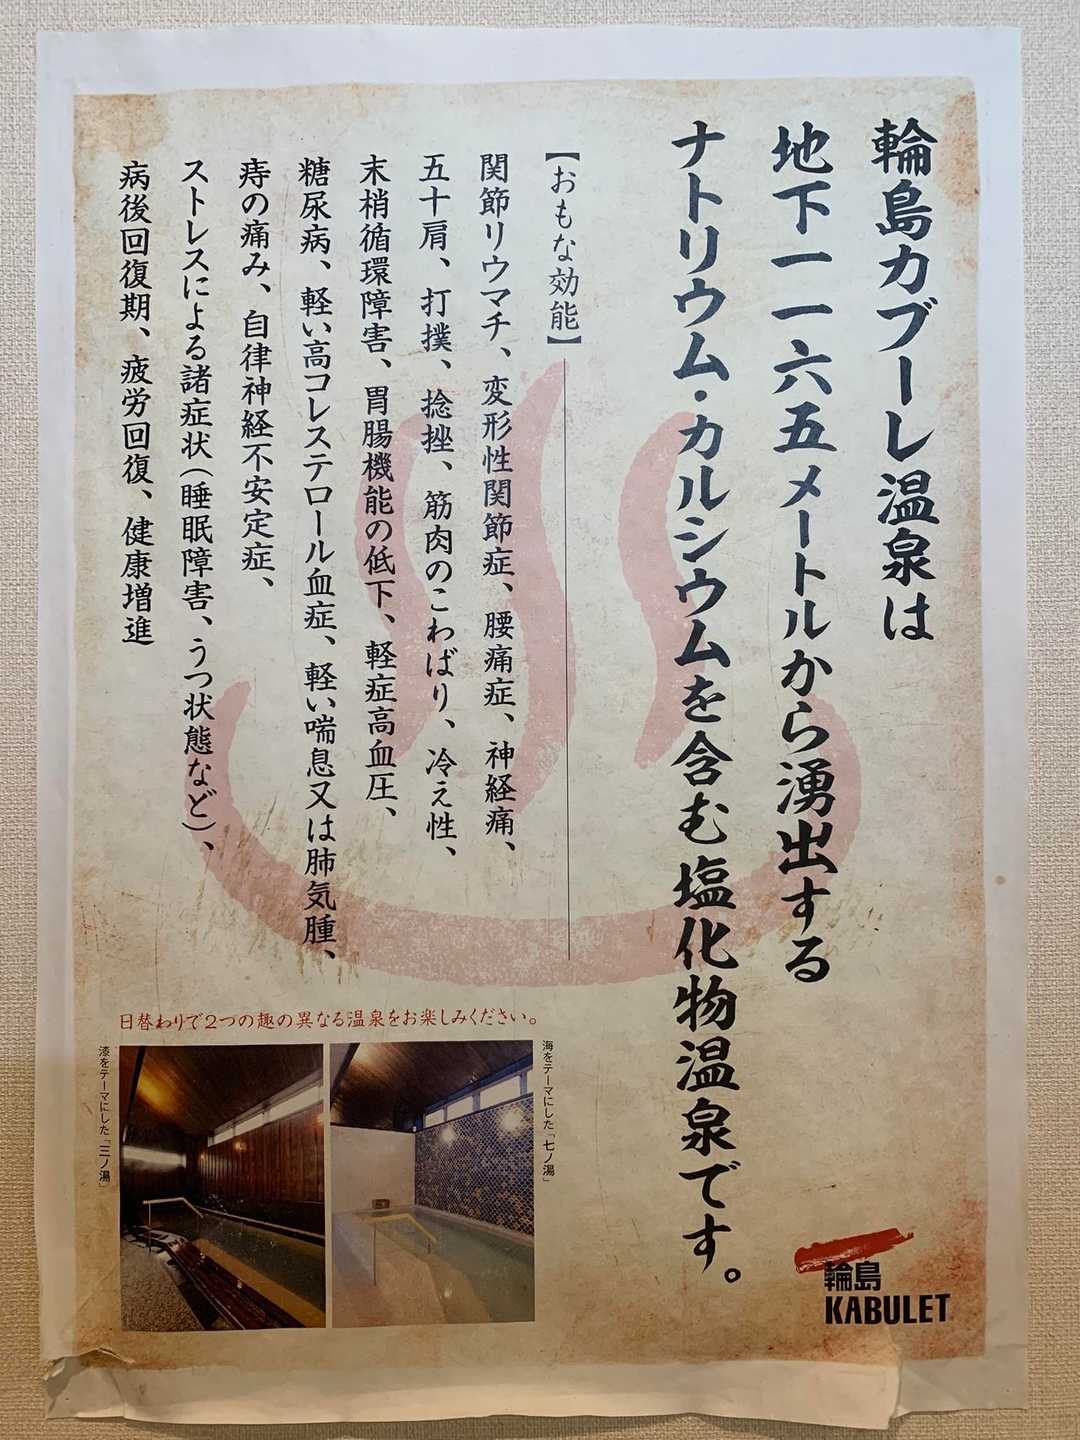 輪島カブーレ温泉は
地下一一六五メートルから湧出する
ナトリウム・カルシウムを含む塩化物温泉です。
【おもな効能】
関節リウマチ、変形性関節症、腰痛症、神経痛、
五十肩、打撲、捻挫、筋肉のこわばり、冷え性、
末梢循環障害、胃腸機能の低下、軽症高血圧、
糖尿病、軽い高コレステロール血症、軽い喘息又は肺気腫、
痔の痛み、自律神経不安定症、
ストレスによる諸症状(睡眠障害、うつ状態など)、
病後回復期、疲労回復、健康増進
日替わりで2つの趣の異なる温泉をお楽しみください。
海をテーマにした「七ノ湯」
漆をテーマにした「三ノ湯」
輪島
KABULET